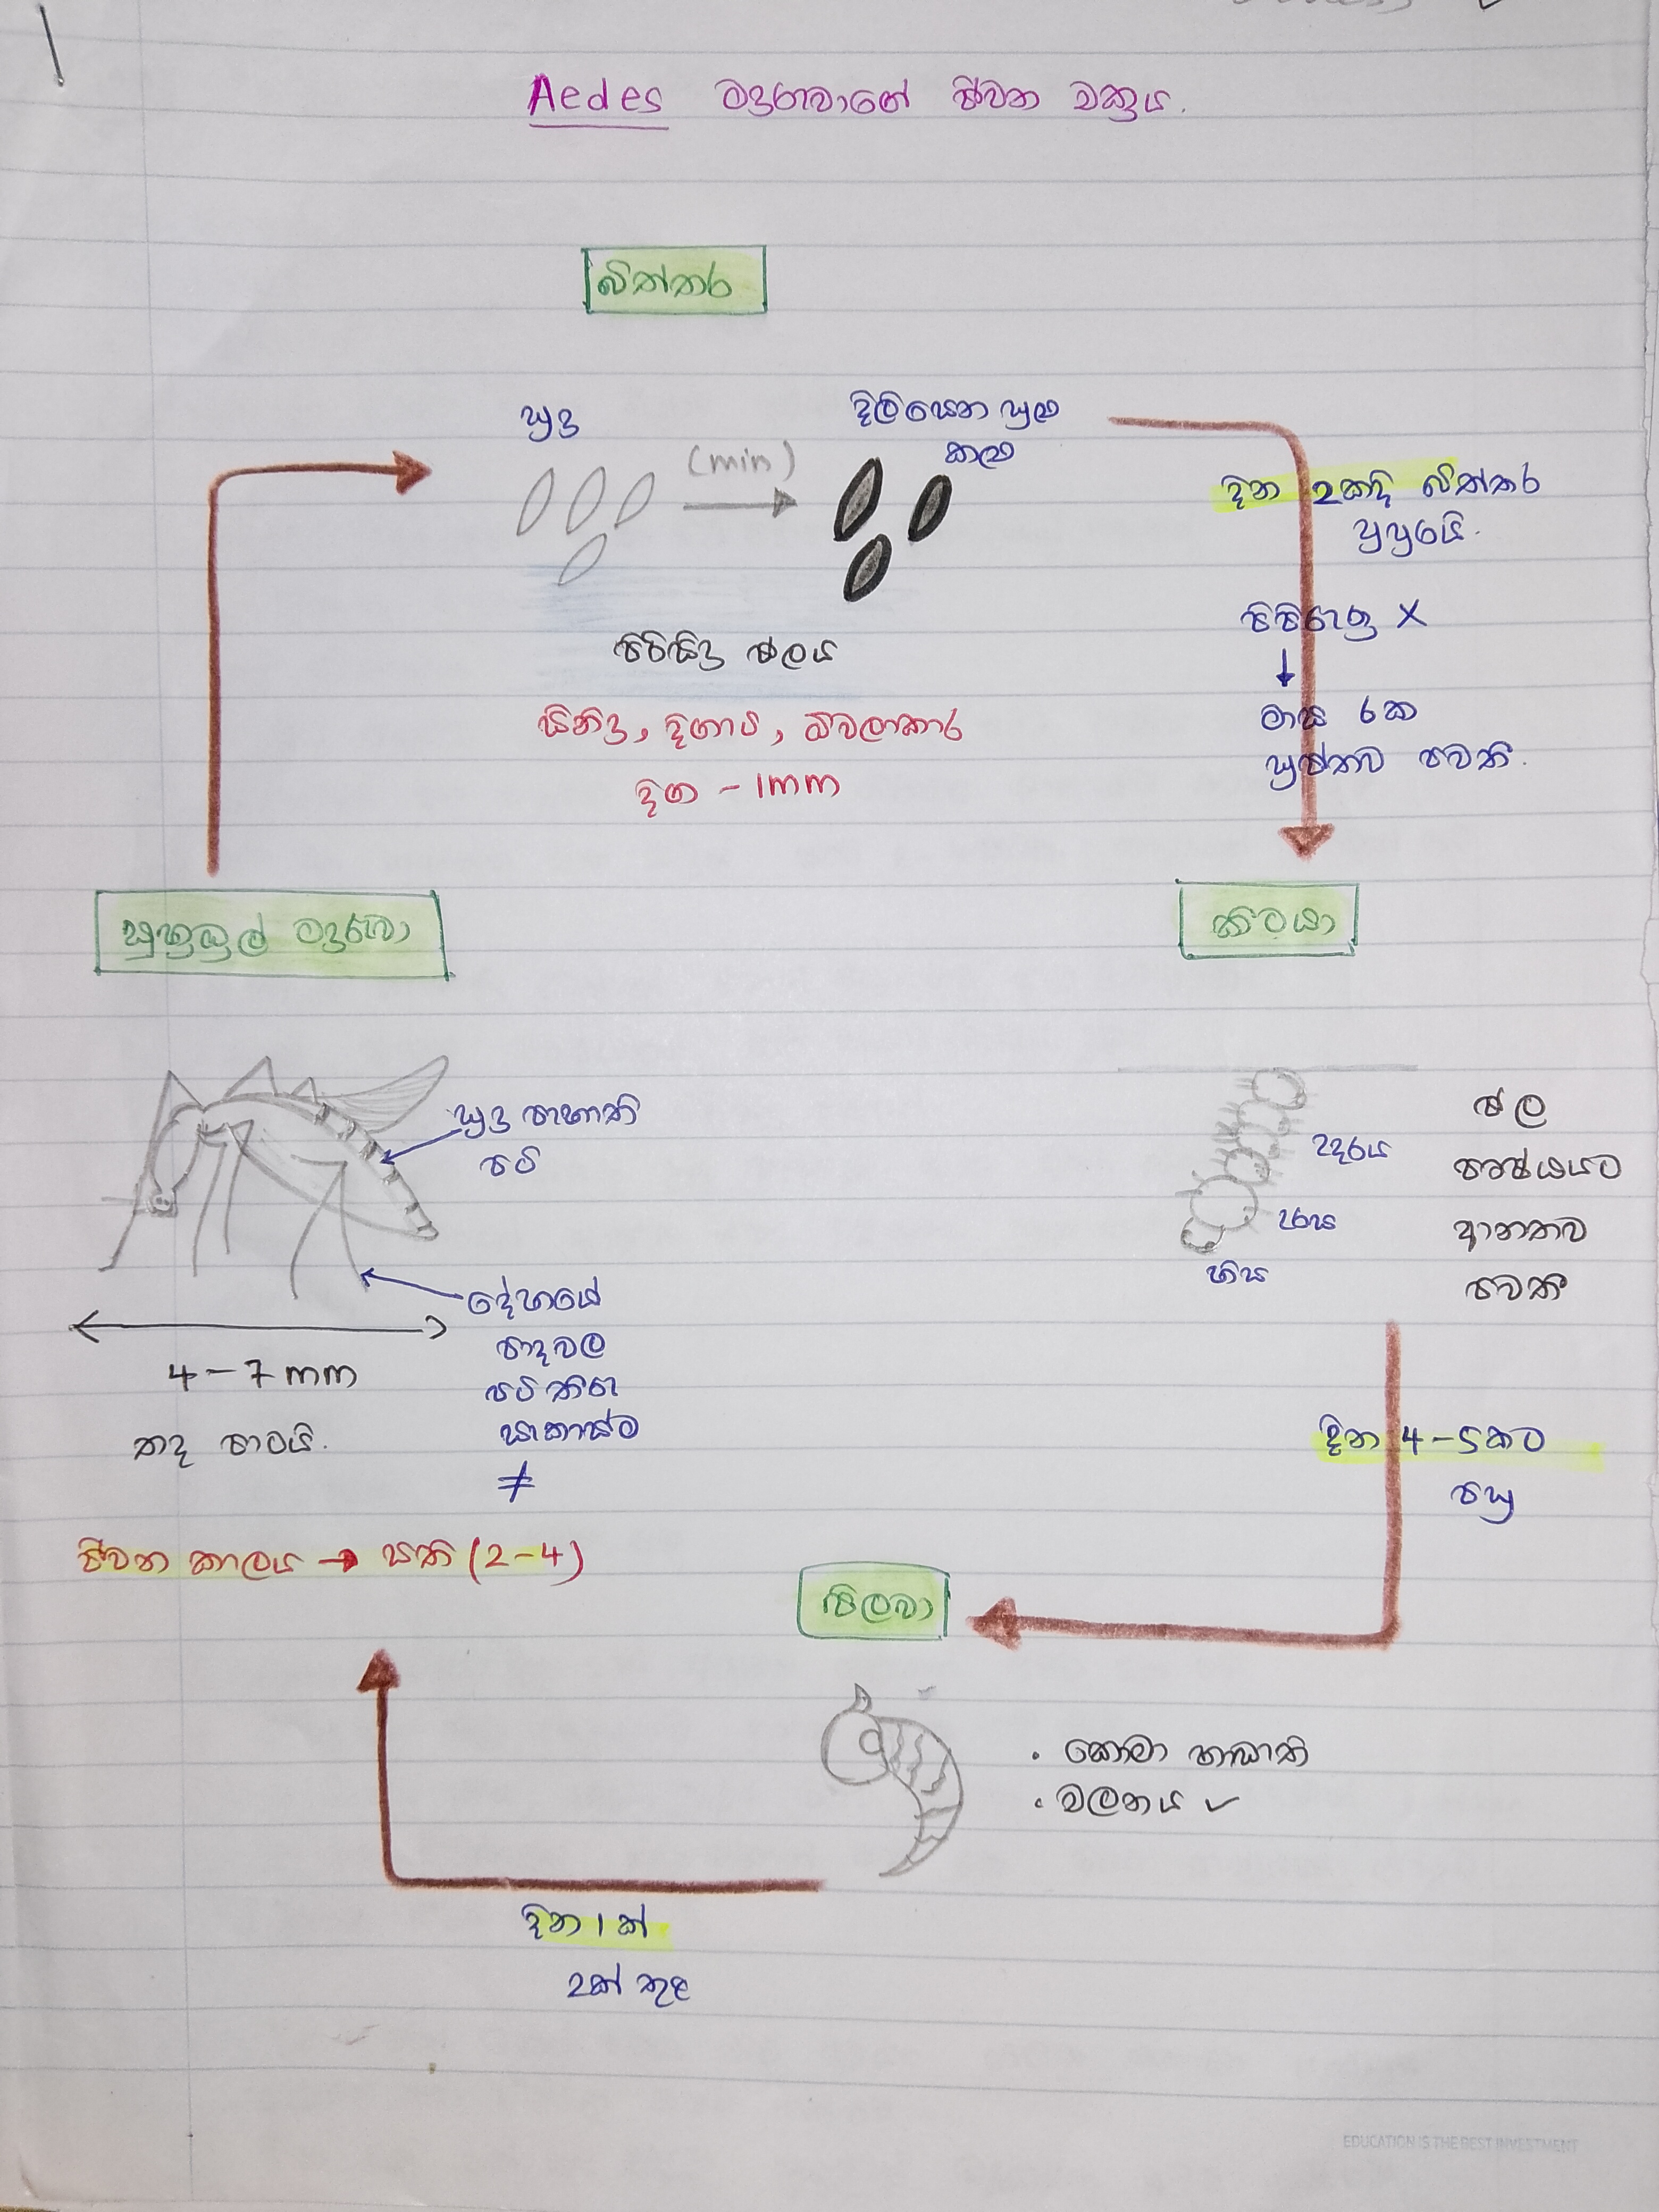 Aedes මදුරුවාගේ ජීවන චක්‍රය.
බිත්තර
සුදු
(min)
දිලිසෙන සුළු
කළු
දින 2කදී බිත්තර
පුපුරයි.
පිපිරුනු X
මාස 6ක
සුප්තව පවතී.
පිරිසිදු ජලය
සිනිඳු, දිගටි, ඕවලාකාර
දිග - 1mm
සුහුඹුල් මදුරුවා
කීටයා
සුදු පැහැති
පටි
දේහයේ
පාදවල
පටි තිබේ
සැකැස්ම
≠
4 - 7 mm
තද පාටයි.
ජීවන කාලය → සති (2-4)
උදරය
උරස
හිස
ජල
පෘෂ්ඨයට
ආනතව
පවතී
දින 4-5කට
පසු
පිලවා
. කොමා හැඩැති
. චලනය ✓
දින 1ක්
2ක් තුළ
EDUCATION IS THE BEST INVESTMENT